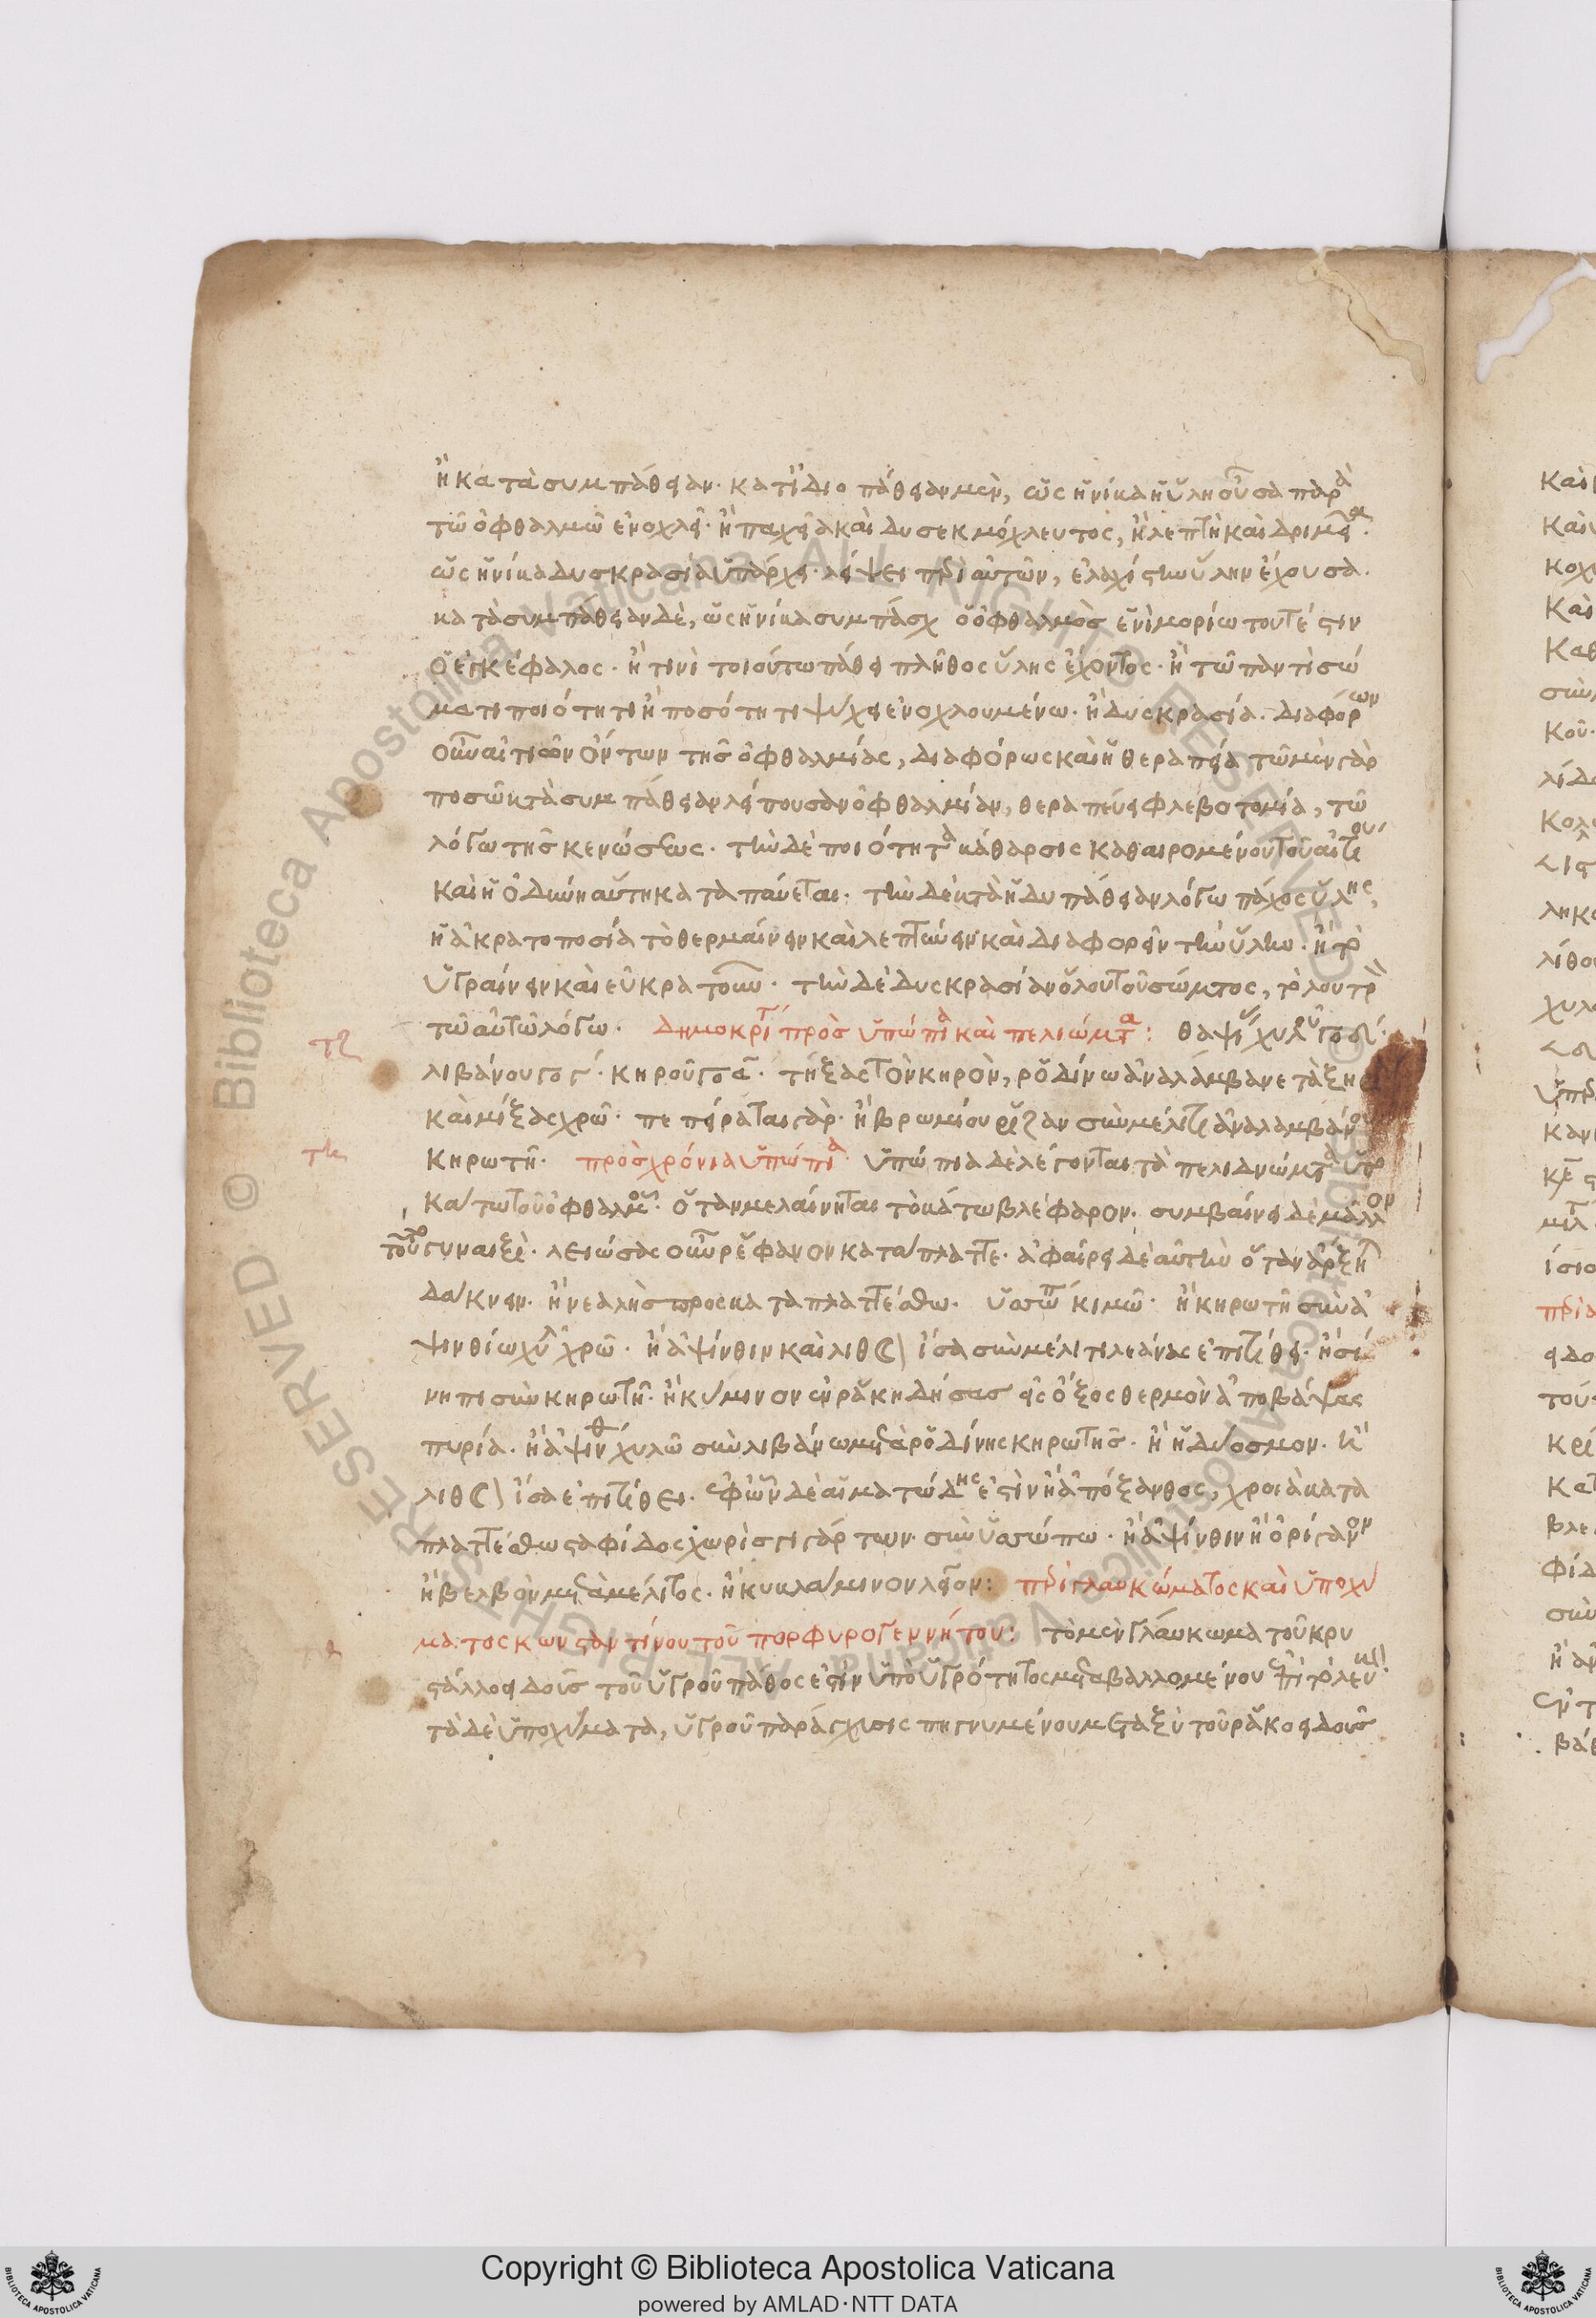 ἢ κατὰ συμπάθειαν· κατ ἰδιοπάθειαν μὲν, ὡς ἡνίκα ἡ ὕλη οὖσα παρὰ
τῶ ὀφθαλμῶ ἐνοχλεῖ· ἢ παχεῖα καὶ δυσεκμόχλευτος, ἢ λεπτὴ καὶ δριμεῖα·
ὡς ἡνίκα δυσκρασία ὑπάρχει· λείψει περὶ αὐτῶν, ἐλαχίστην ὕλην ἔχουσα.
κατὰ συμπάθειαν δὲ, ὡς ἡνίκα συμπάσχ ὁ ὀφθαλμὸς ἑνὶ μορίω τουτέστιν
ὁ ἐγκέφαλος· ἢ τινὶ τοιούτω πάθει πλῆθος ὕλης ἔχοντος· ἢ τῶ παντὶ σώ
ματι ποιότητι ἢ ποσότητι ψύχει ἐνοχλουμένω· ἢ δυσκρασία. διαφόρων
οὖν αἰτιῶν ὄντων τῆς ὀφθαλμίας, διαφόρως καὶ ἡ θεραπεία τῶ μὲν γὰρ
ποσῶ κατὰ συμπάθειαν λείπουσαν ὀφθαλμίαν, θεραπεύει φλεβοτομία, τῶ
λόγω τῆς κενώσεως. τὴν δὲ ποιότητα κάθαρσις καθαιρομένου τοῦ αἰτίου
καὶ ἡ ὀδύνη αὐτῆ καταπαύεται· τὴν δὲ κατὰ ἡδυπάθειαν λόγω πάχος ὕλης,
ἡ ἀκρατοποσία τὸ θερμαίνειν καὶ λεπτύνειν καὶ διαφορεῖν τὴν ὕλην. ἢ τὸ
ὑγραίνειν καὶ εὐκρατοῦν. τὴν δὲ δυσκρασίαν ὅλου τοῦ σώματος, τὸ λουτρ
τῶ αὐτῶ λόγω. Δημοκρίτ πρὸς ὑπώπια καὶ πελιώματα: θαψίας χυλοῦ
λιβάνου γο γ. κηροῦ γο α. τήξας τὸν κηρὸν, ῥοδίνω ἀναλάμβανε τὰ ξη
καὶ μίξας χρῶ. πεπείραται γάρ. ἢ βρωμίου ῥίζαν σὺν μέλιτι ἀναλαμβάν
κηρωτῆ. πρὸς χρόνια ὑπώπια· ὑπώπια δὲ λέγονται τὰ πελιδνώματα
κάτω τοῦ ὀφθαλμοῦ· ὅταν μελαίνηται τὸ κάτω βλέφαρον. συμβαίνει δὲ μάλλον
τοῦτο γυναιξὶ. λειώσας οὖν ῥέφανον κατάπλαττε. ἀφαίρει δὲ αὐτὴν ὅταν ἄρξηται
δάκνειν. ἢ νεαλὴς τυρος καταπλαττέσθω. ὑσσώπ κιμῶ. ἢ κηρωτῆ σὺν ἀ
ψινθίω χυλ χρῶ. ἢ ἀψίνθιν καὶ λιθ ἴσα σὺν μέλιτι λεάνας ἐπιτίθει. ἢ σι
νηπι σὺν κηρωτῆ. ἢ κύμινον ἐν ῥάκη δήσας εἰς ὄξος θερμὸν ἀποβάψας
πυρία. ἢ ἀψινθ χυλῶ σὺν λιβάνω μετὰ ῥοδίνης κηρωτῆς. ἢ ἡδύοσμον. καὶ
λιθ ἴσα ἐπιτίθει. ἐφ ὧν δὲ αἱματώδης ἐστὶν ἢ ἀπόξανθος, χροιὰ κατα
πλαττέσθω σταφίδος χωρὶς γιγάρτων. σὺν ὑσσώπω. ἢ ἀψίνθιν ἢ ὀρίγανον
ἢ βελβὸν μετὰ μέλιτος. ἢ κυκλάμινον λεῖον: περὶ γλαυκώματος καὶ ὑποχύ
ματος κωνσταντίνου τοῦ πορφυρογεννήτου: τὸ μὲν γλαύκωμα τοῦ κρυ
στάλλοειδοῦς τοῦ ὑγροῦ πάθος ἐστὶν ὑπὸ ὑγρότητος μεταβαλλομένου ἐπὶ τὸ λευκ
τὰ δὲ ὑποχύματα, ὑγροῦ παρέγχυσις πηγνυμένου μεταξὺ τοῦ ῥακοειδοῦς
Copyright © Biblioteca Apostolica Vaticana
powered by AMLAD·NTT DATA